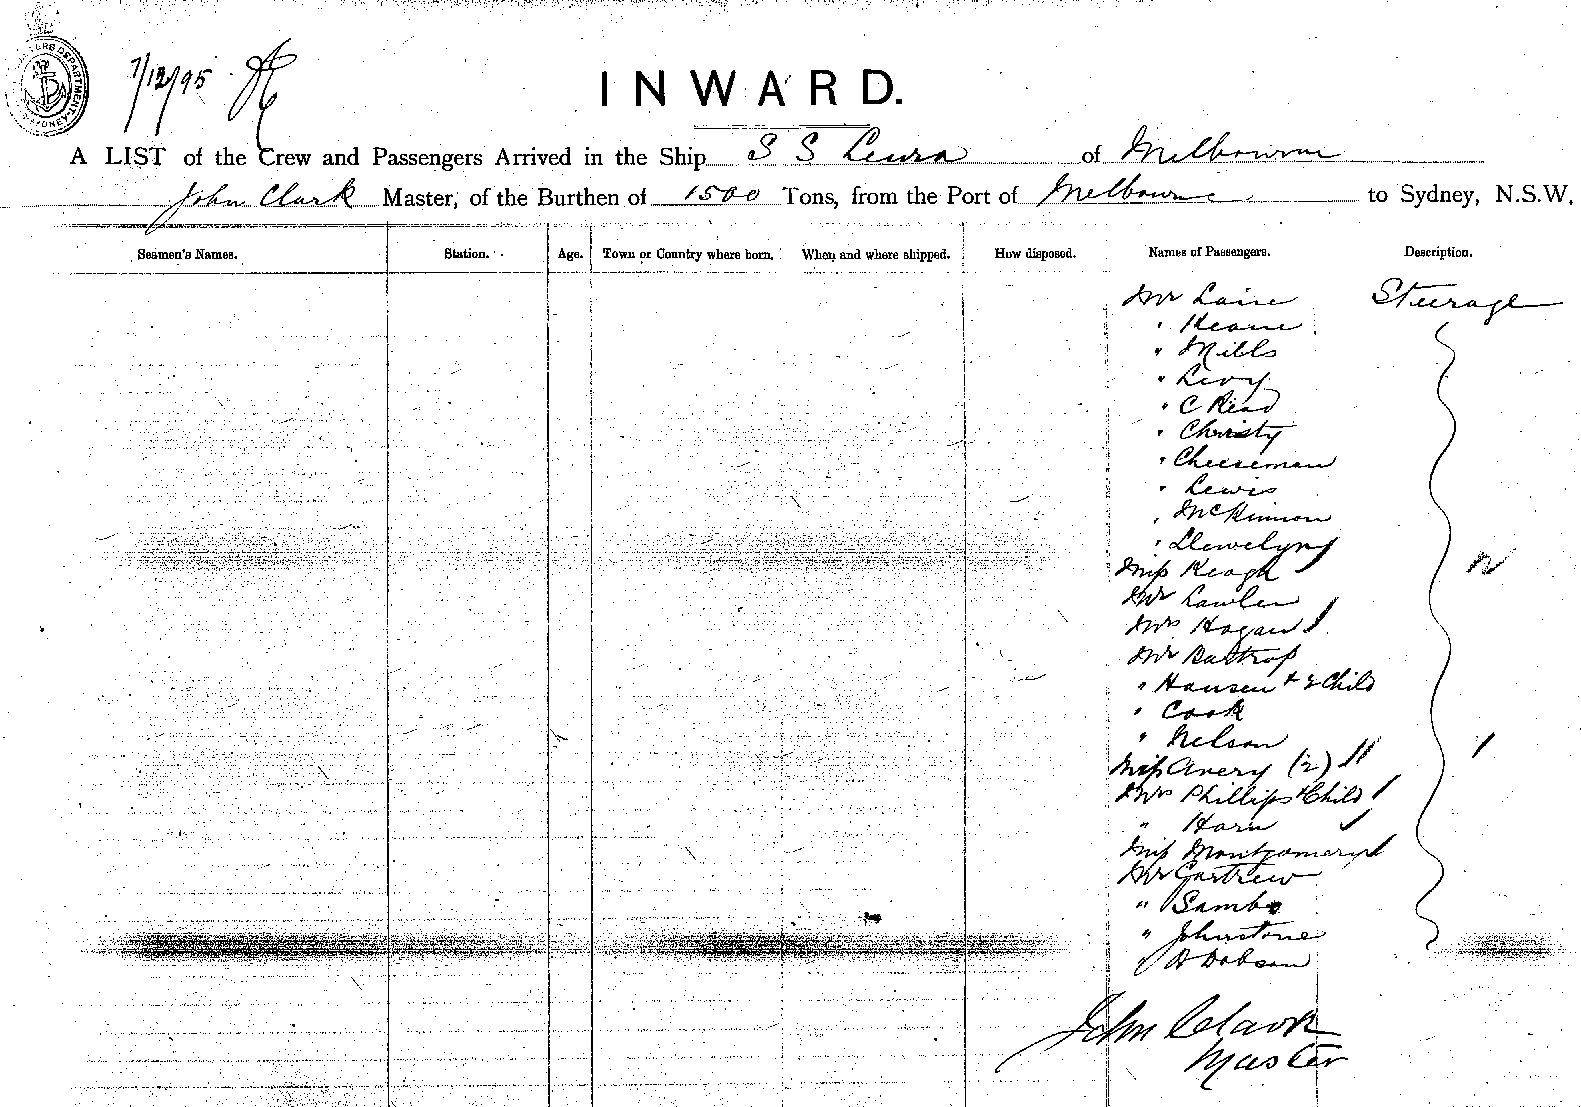 7/12/95
INWARD.
A LIST of the Crew and Passengers Arrived in the Ship S S Leura of Melbourne
John Clark Master, of the Burthen of 1500 Tons, from the Port of Melbourne to Sydney, N.S.W.
Seamen's Names. Station. Age. Town or Country where born. When and where shipped. How disposed. Names of Passengers. Description.
Mr Laine Steerage
" Keane
" Mills
" Levy
" C Read
" Christy
" Cheeseman
" Lewis
" McKinnon
" Llewelyn
Miss Keogh
Mr Lawler
Mrs Hogan
Mr Bartrop
" Hansen + 2 Child
" Cook
" Nelson
Miss Avery (2)
Mrs Phillips & Child
" Horn
Miss Montgomery
Mr Gartrew
" Sambo
" Johnstone
" D Dobson
John Clark
Master